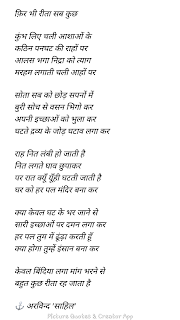 फ़िर भी रीता सब कुछ
कुंभ लिए चली आशाओं के
कठिन पनघट की राहों पर
आलस भगा निद्रा को त्याग
मरहम लगाती चली आहों पर
सोता सब को छोड़ सपनों में
बुरी सोच से वसन भिगो कर
अपनी इच्छाओं को भुला कर
घटते द्रव्य के जोड़ घटाव लगा कर
राह नित लंबी हो जाती है
नित लगते घाव छुपाकर
पर रात क्यूँ यूँही घटती जाती है
घर को हर पल मंदिर बना कर
क्या केवल घट के भर जाने से
सारी इच्छाओं पर दमन लगा कर
हर पल तुम में ढूंढा करती हूँ
क्या होगा तुम्हें इंसान बना कर
केवल बिंदिया लगा मांग भरने से
बहुत कुछ रीता रह जाता है
अरविन्द 'साहिल'
Picture Quotes & Creator App